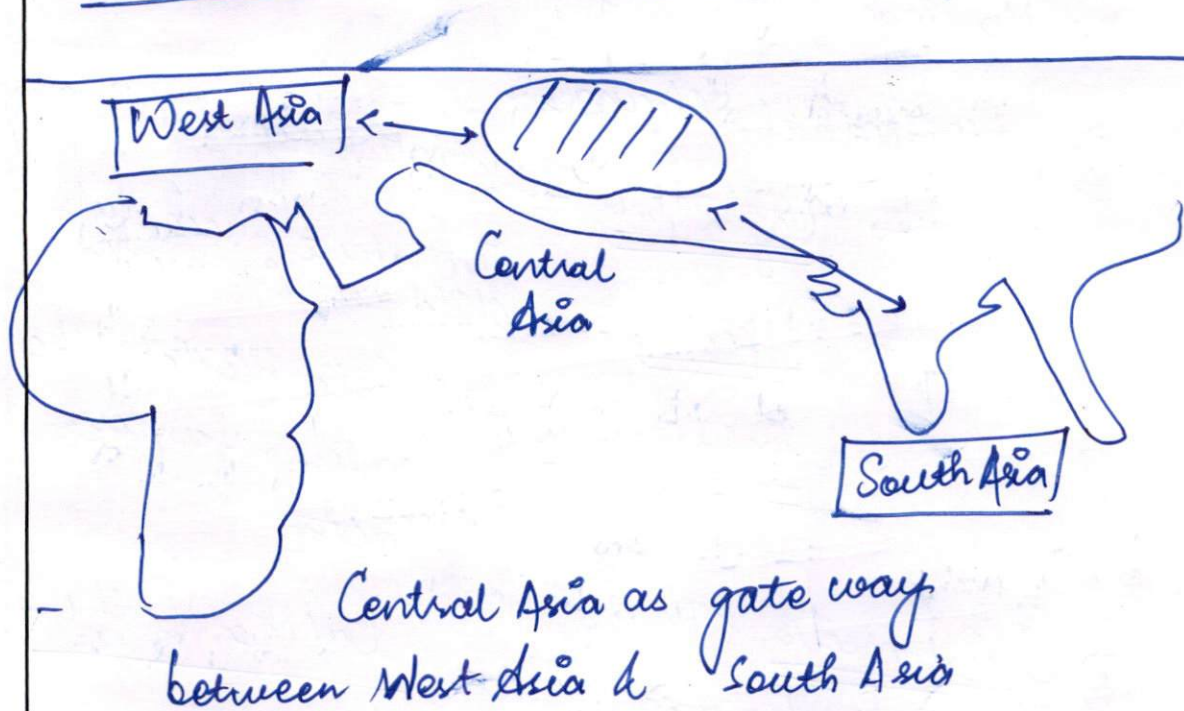 West Asia
Central
Asia
South Asia
- Central Asia as gate way
between West Asia & South Asia